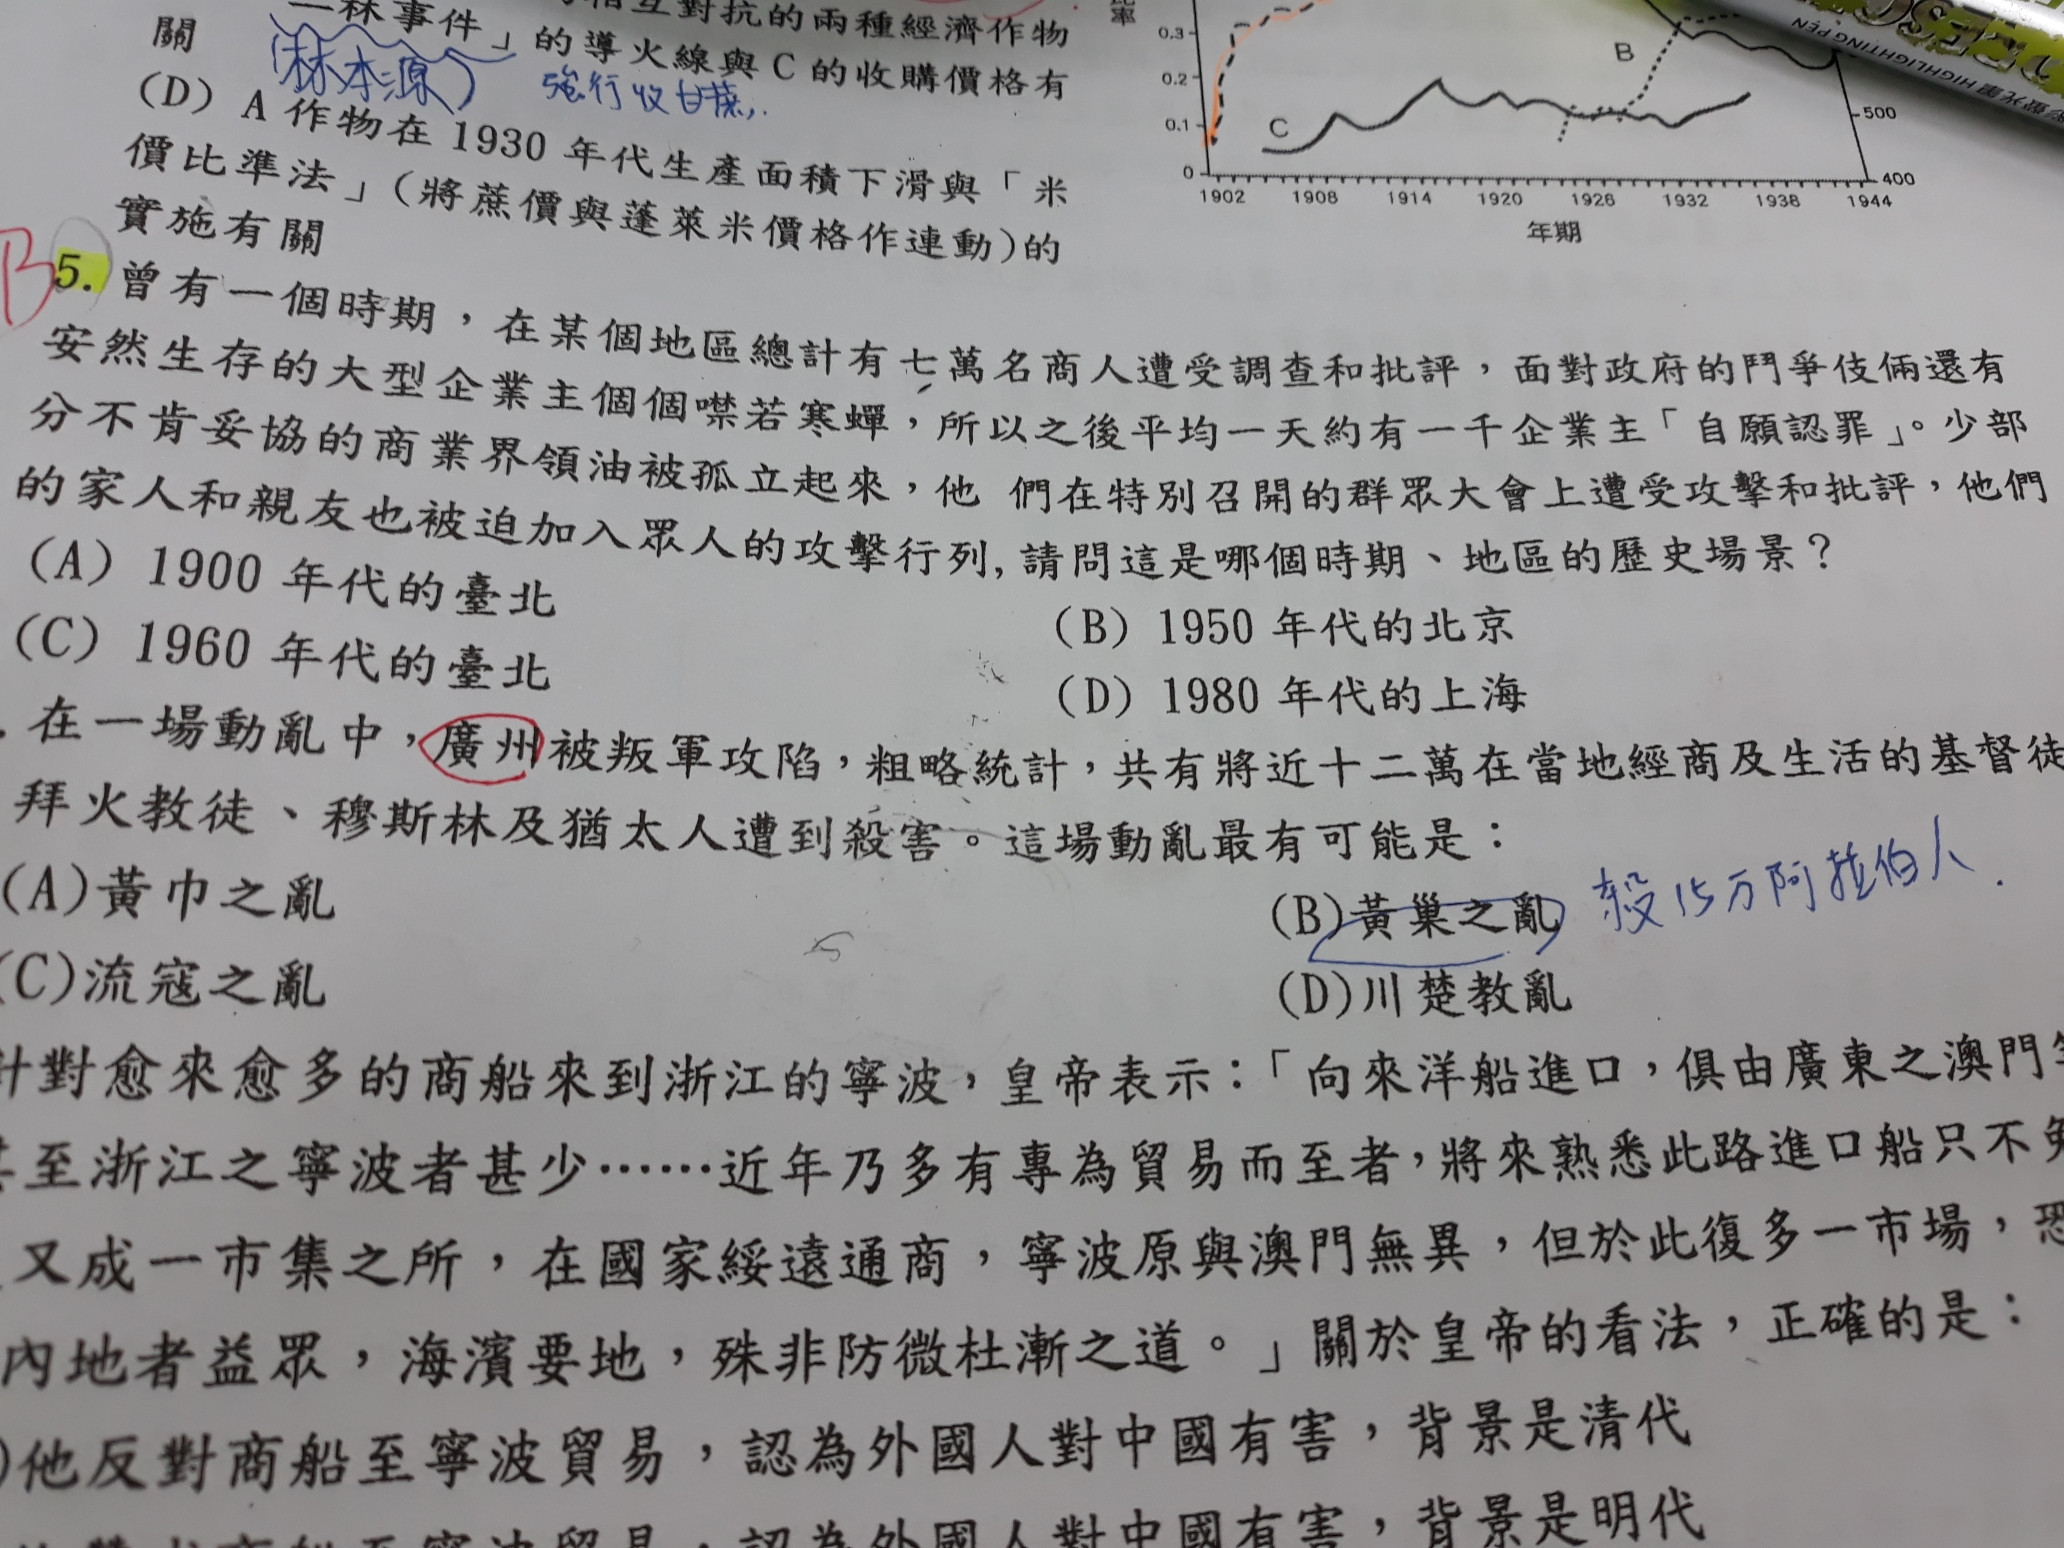 相互對抗的兩種經濟作物
二林事件」的導火線與 C 的收購價格有
關
(林本源) 強行收甘蔗
(D) A 作物在 1930 年代生產面積下滑與「米
價比準法」(將蔗價與蓬萊米價格作連動)的
實施有關
率
0.3
0.2
0.1
0
B
C
500
400
1902 1908 1914 1920 1926 1932 1938 1944
年期
HIGHLIGHTING PEN
B
5. 曾有一個時期，在某個地區總計有七萬名商人遭受調查和批評，面對政府的鬥爭伎倆還有
安然生存的大型企業主個個噤若寒蟬，所以之後平均一天約有一千企業主「自願認罪」。少部
分不肯妥協的商業界領油被孤立起來，他 們在特別召開的群眾大會上遭受攻擊和批評，他們
的家人和親友也被迫加入眾人的攻擊行列, 請問這是哪個時期、地區的歷史場景？
(A) 1900 年代的臺北
(B) 1950 年代的北京
(C) 1960 年代的臺北
(D) 1980 年代的上海
. 在一場動亂中，廣州被叛軍攻陷，粗略統計，共有將近十二萬在當地經商及生活的基督徒
拜火教徒、穆斯林及猶太人遭到殺害。這場動亂最有可能是：
(A)黃巾之亂
(B)黃巢之亂 殺15万阿拉伯人.
(C)流寇之亂
(D)川楚教亂
針對愈來愈多的商船來到浙江的寧波，皇帝表示：「向來洋船進口，俱由廣東之澳門等
甚至浙江之寧波者甚少……近年乃多有專為貿易而至者，將來熟悉此路進口船只不免
又成一市集之所，在國家綏遠通商，寧波原與澳門無異，但於此復多一市場，恐
內地者益眾，海濱要地，殊非防微杜漸之道。」關於皇帝的看法，正確的是：
)他反對商船至寧波貿易，認為外國人對中國有害，背景是清代
商船至寧波貿易，認為外國人對中國有害，背景是明代